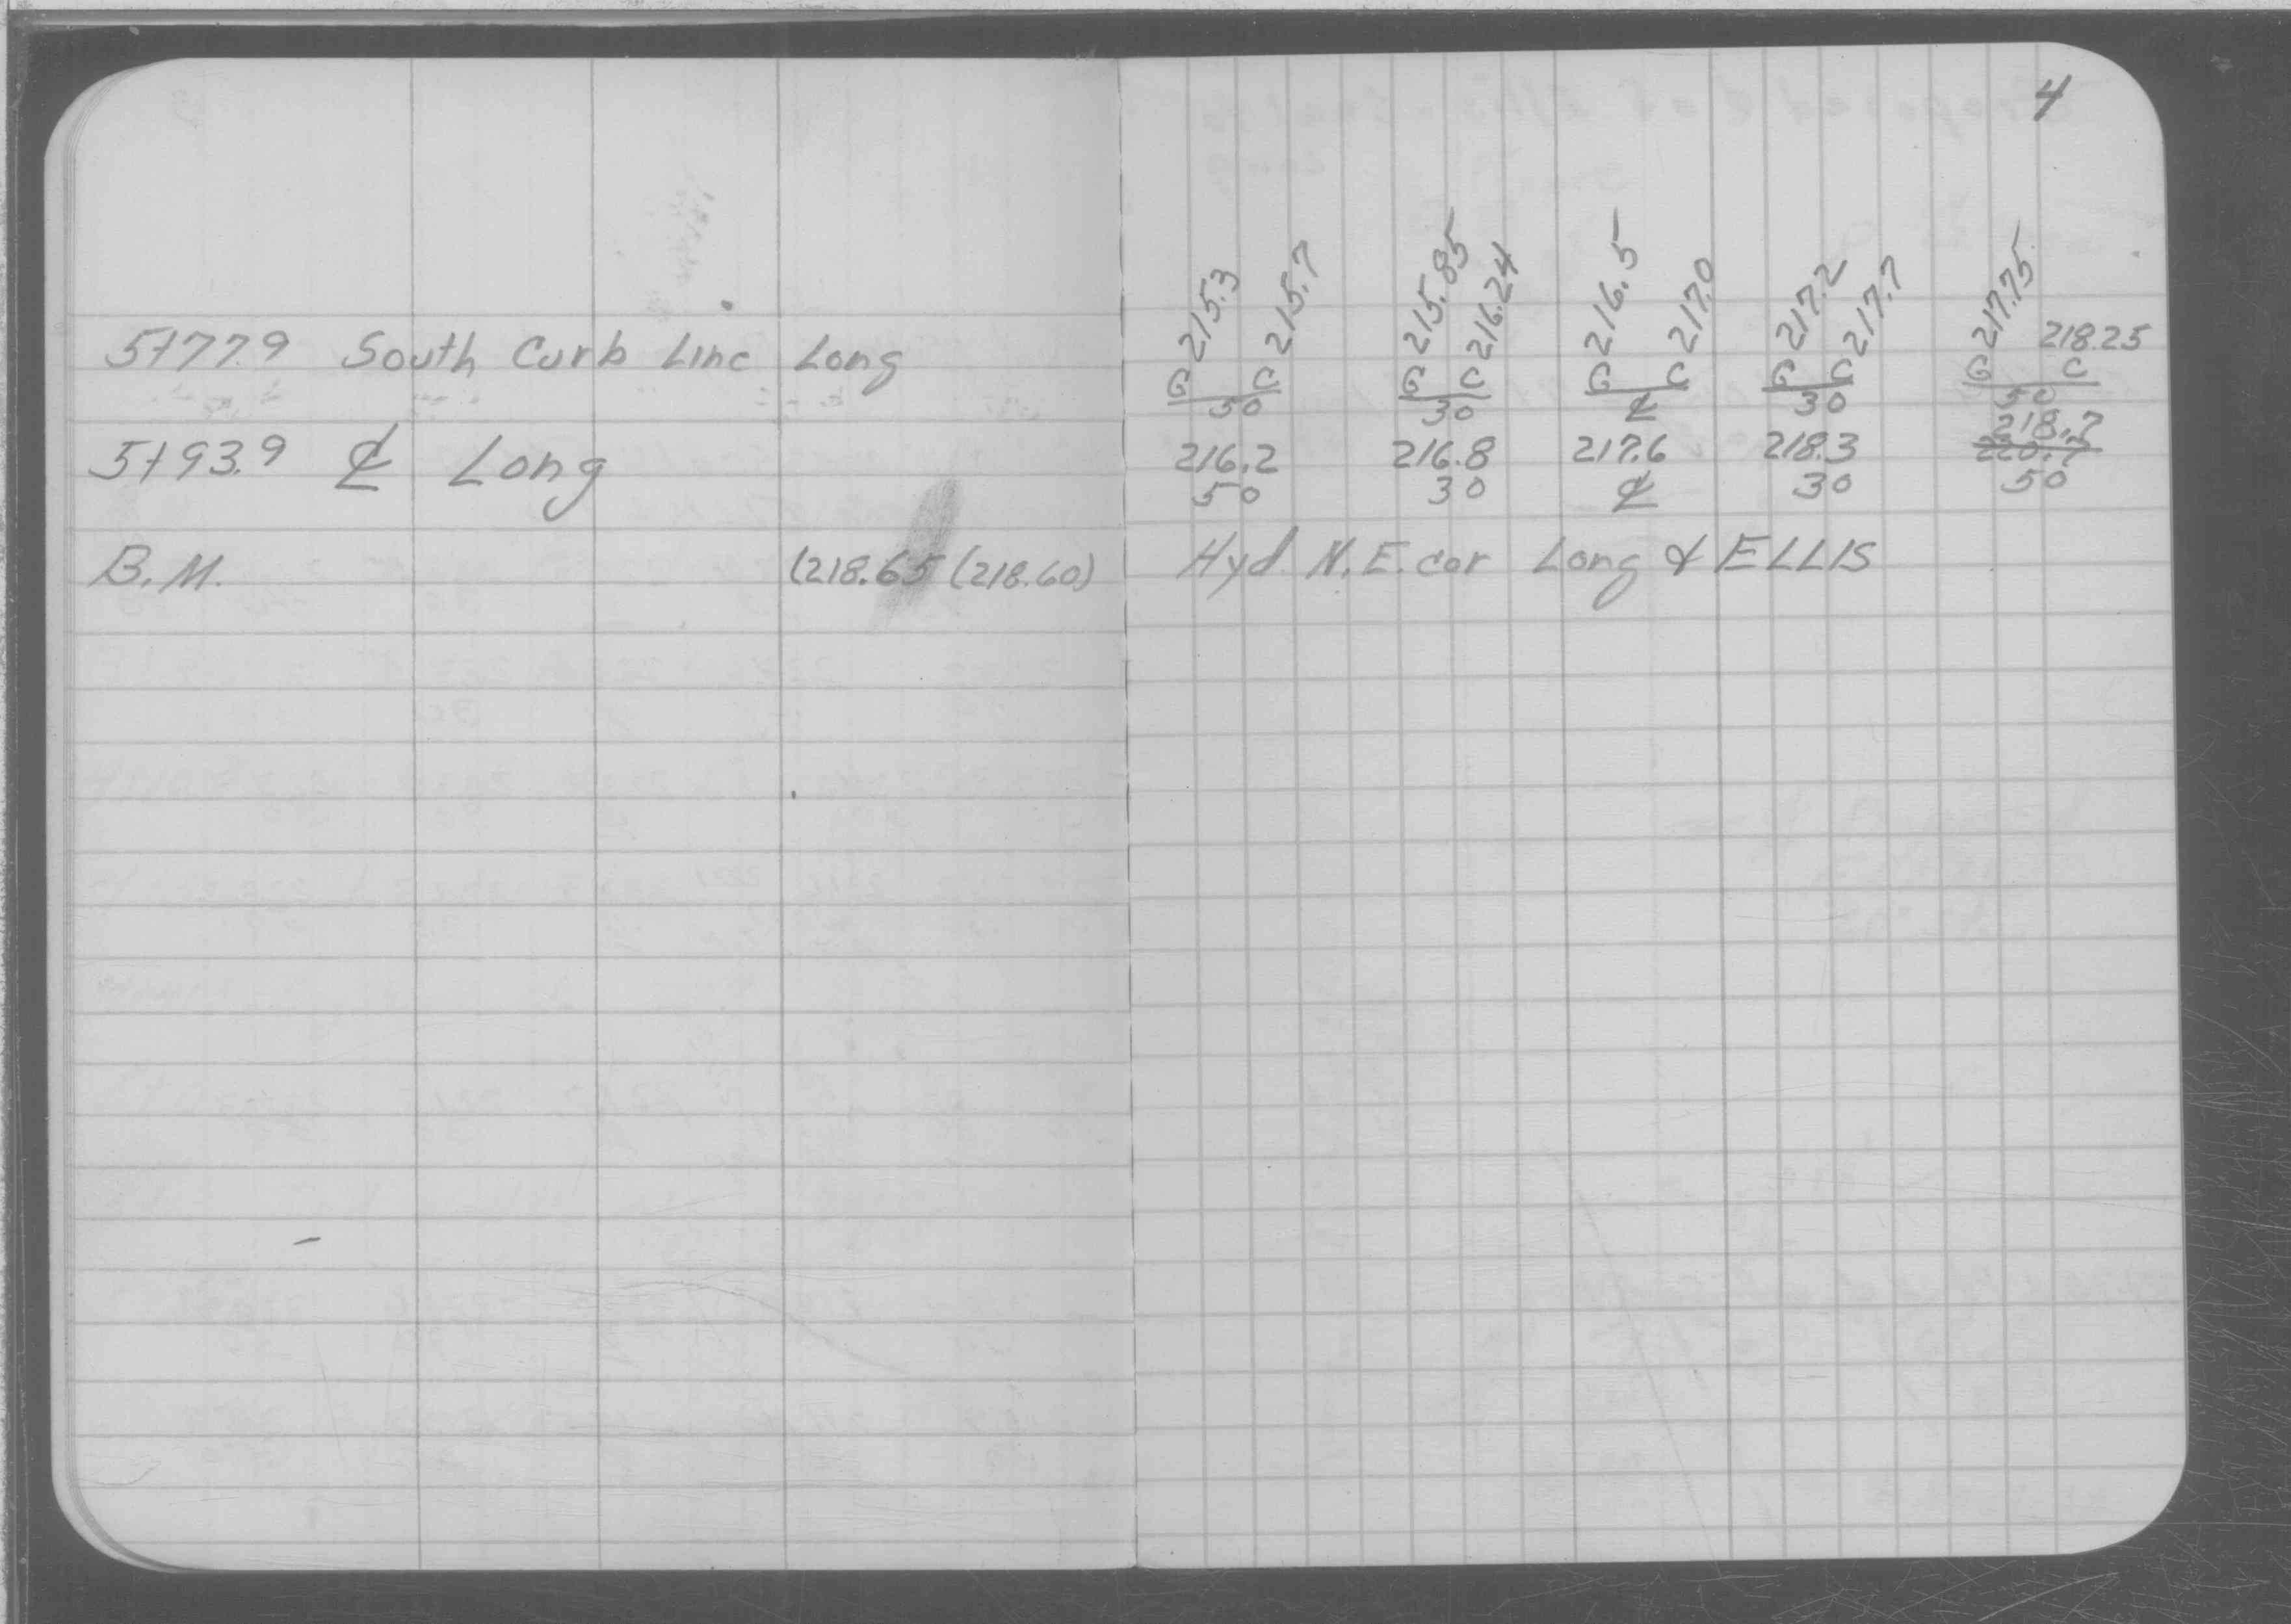 4
5+77.9 South Curb Line Long G 215.3 C 215.7 G 215.85 C 216.24 G 216.5 C 217.0 G 217.2 C 217.7 G 217.75 C 218.25
50 30 ℄ 30 50
218.7
5+93.9 ℄ Long 216.2 216.8 217.6 218.3 220.7
50 30 ℄ 30 50
B.M. (218.65 (218.60) Hyd N.E. cor Long & ELLIS